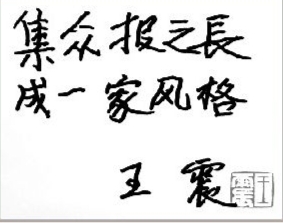 集众报之長
成一家风格
王震
王震